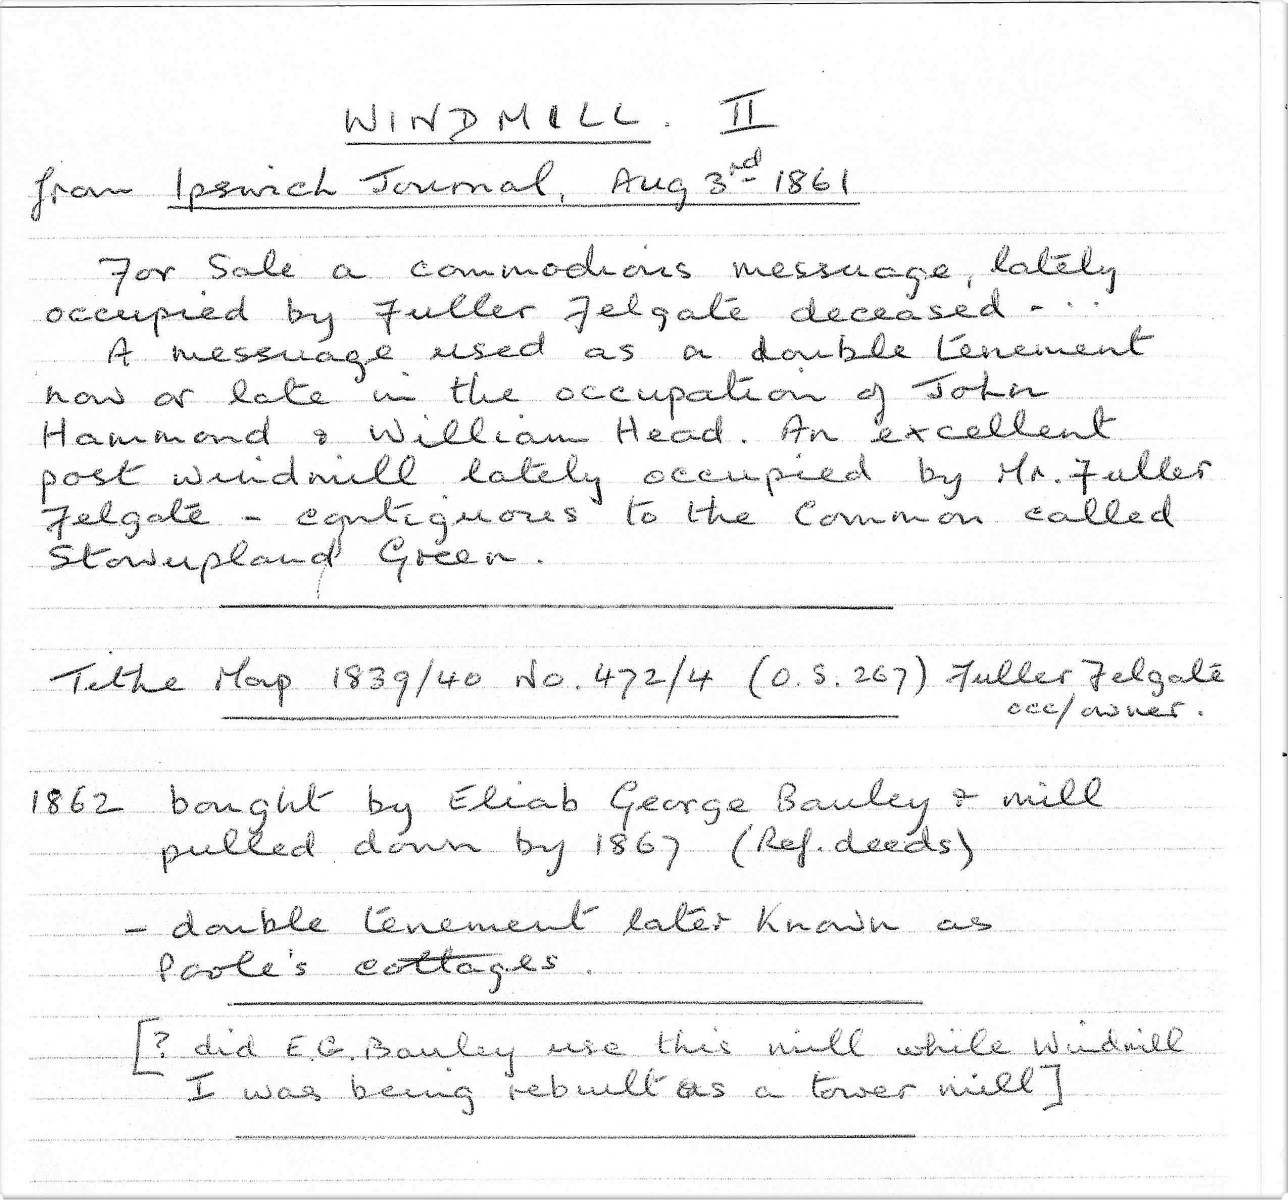 WINDMILL. II
from Ipswich Journal, Aug 3rd 1861
For Sale a commodious messuage, lately
occupied by Fuller Felgate deceased - ...
A messuage used as a double tenement
now or late in the occupation of John
Hammond & William Head. An excellent
post windmill lately occupied by Mr. Fuller
Felgate - contiguous to the Common called
Stowupland Green.
Tithe Map 1839/40 No. 472/4 (O.S. 267) Fuller Felgate
occ/owner.
1862 bought by Eliab George Bauley & mill
pulled down by 1867 (Ref. deeds)
- double tenement later known as
Poole's cottages.
[? did E.G. Bauley use this mill while Windmill
I was being rebuilt as a tower mill]